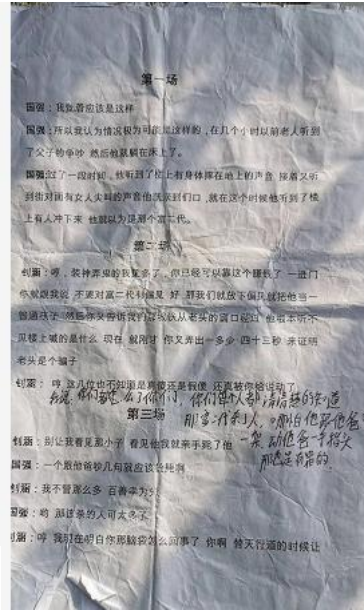 第一场
国强：我觉着应该是这样
国强：所以我认为情况极为可能是这样的，在几个小时以前老人听到
了父子的争吵 然后他就躺在床上了。
国强：过了一段时间，他听到了楼上有身体摔在地上的声音 接着又听
到街对面有女人尖叫的声音他就来到们口，就在这个时候他听到了楼
上有人冲下来 他就以为是那个富二代。
第二场
钊涵：哼，装神弄鬼的我见多了，你已经可以靠这个赚钱了 一进门
你就跟我说 不要对富二代有偏见 好 那我们就放下偏见就把他当一
普通孩子 然后你又告诉我们 从老头的窗口经过 他根本听不
见楼上喊的是什么 现在 就刚才 你又弄出一多少 四十三秒 来证明
老头是个骗子
钊涵：哼 这几位也不知道是真傻还是假傻 还真被你给说动了
你们都怎么了你们，你们每个人都清清楚楚的知道
那富二代杀了人，
第三场
钊涵：别让我看见那小子 看见他我就亲手毙了他
国强：一个跟他爸吵几句就应该
钊涵：我不管那么多 百善孝为先
国强：哟 那该杀的人可太多了
钊涵：哼 我现在明白你那脑袋怎么回事了 你啊 替天行道的时候让